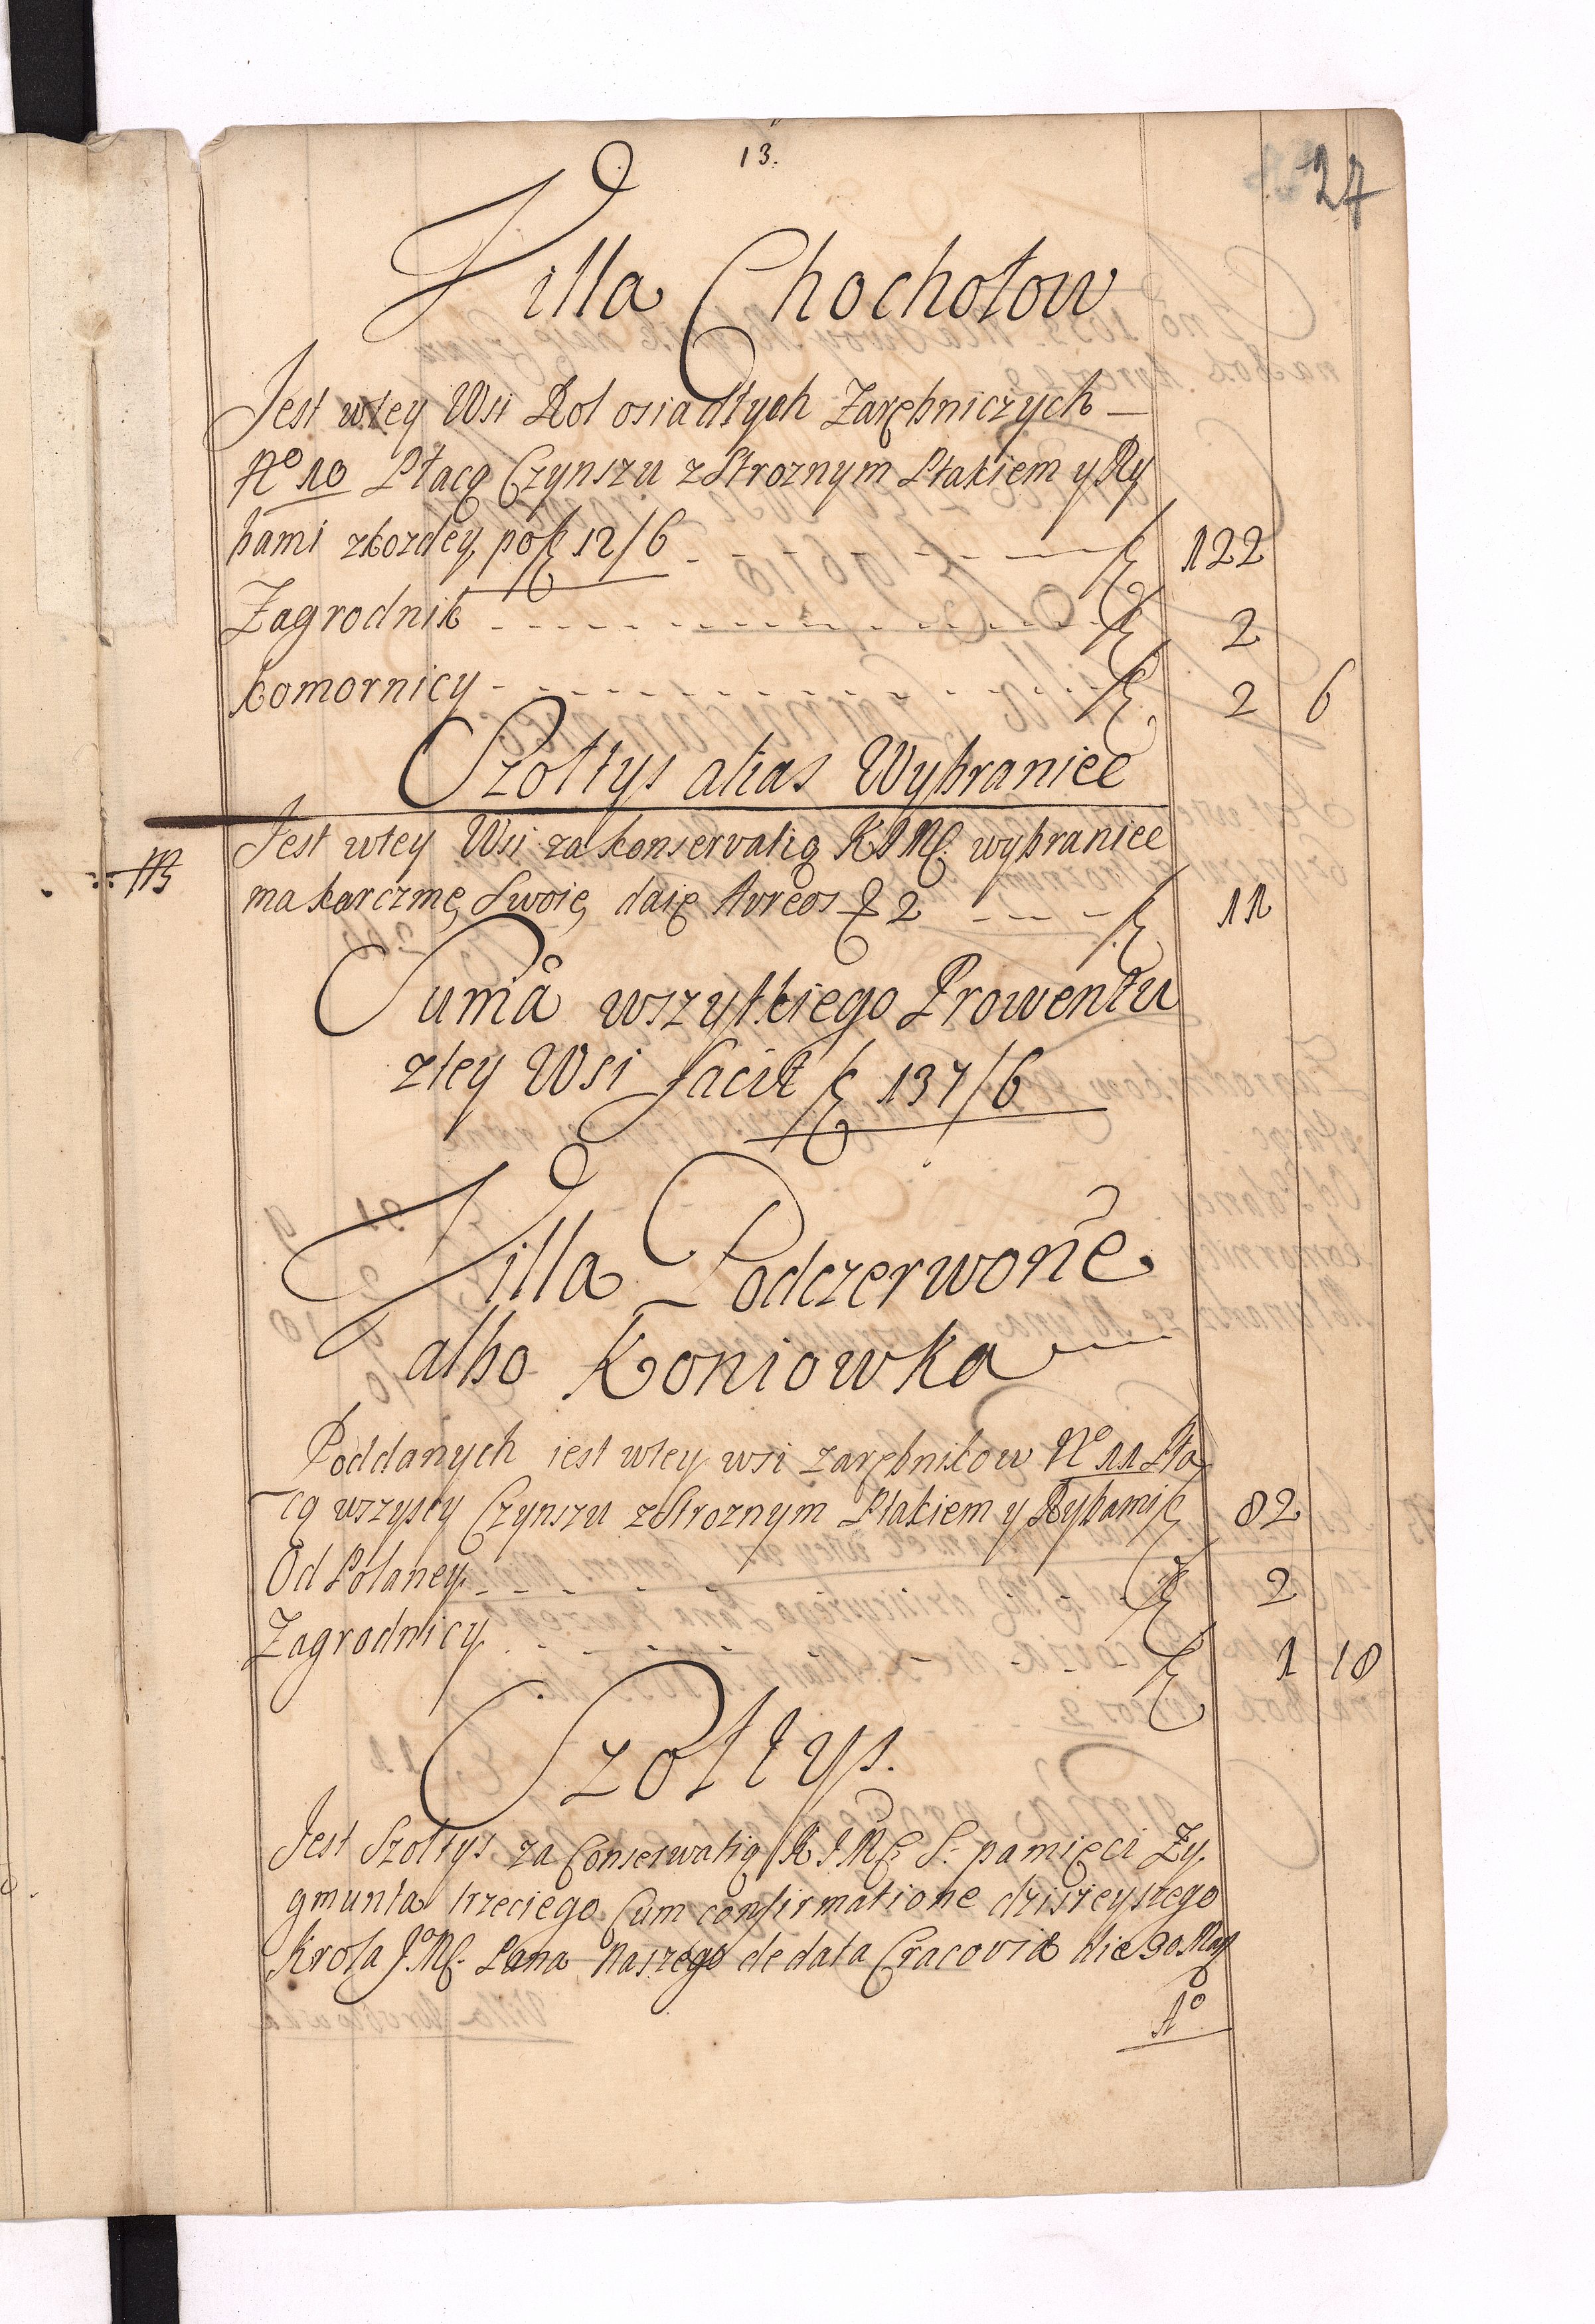 13.
27
Villa Chochołow
Jest wtey Wsi Rol osiadłych Zarębniczych —
No 10 Płacą Czynszu z Stroznym Ptakiem y Ry
bami zkozdey po f 12/6 f 122
Zagrodnik f 2
komornicy f 2 6
Szołtys alias Wybraniec
Jest wtey Wsi za konservatią KJMci wybraniec
ma karczmę Swoię daie Avreos 2 f 11
Suma wszytkiego Prowentu
ztey Wsi facit f 137/6
Villa Podczerwone
albo Koniowka
Poddanych iest wtey wsi zarębnikow No 11 Pła
cą wszyscy Czynszu z Stroznym Ptakiem y Rybami f 82
Od Polaney f 2
Zagrodnicy f 1 18
Szołtys.
Jest Szołtys za Conserwatią KJMci S. pamięci Zy
gmunta trzeciego Cum confirmatione dzisieyszego
Krola J.Mci Pana Naszego de data Cracoviæ die 30 May
Ao